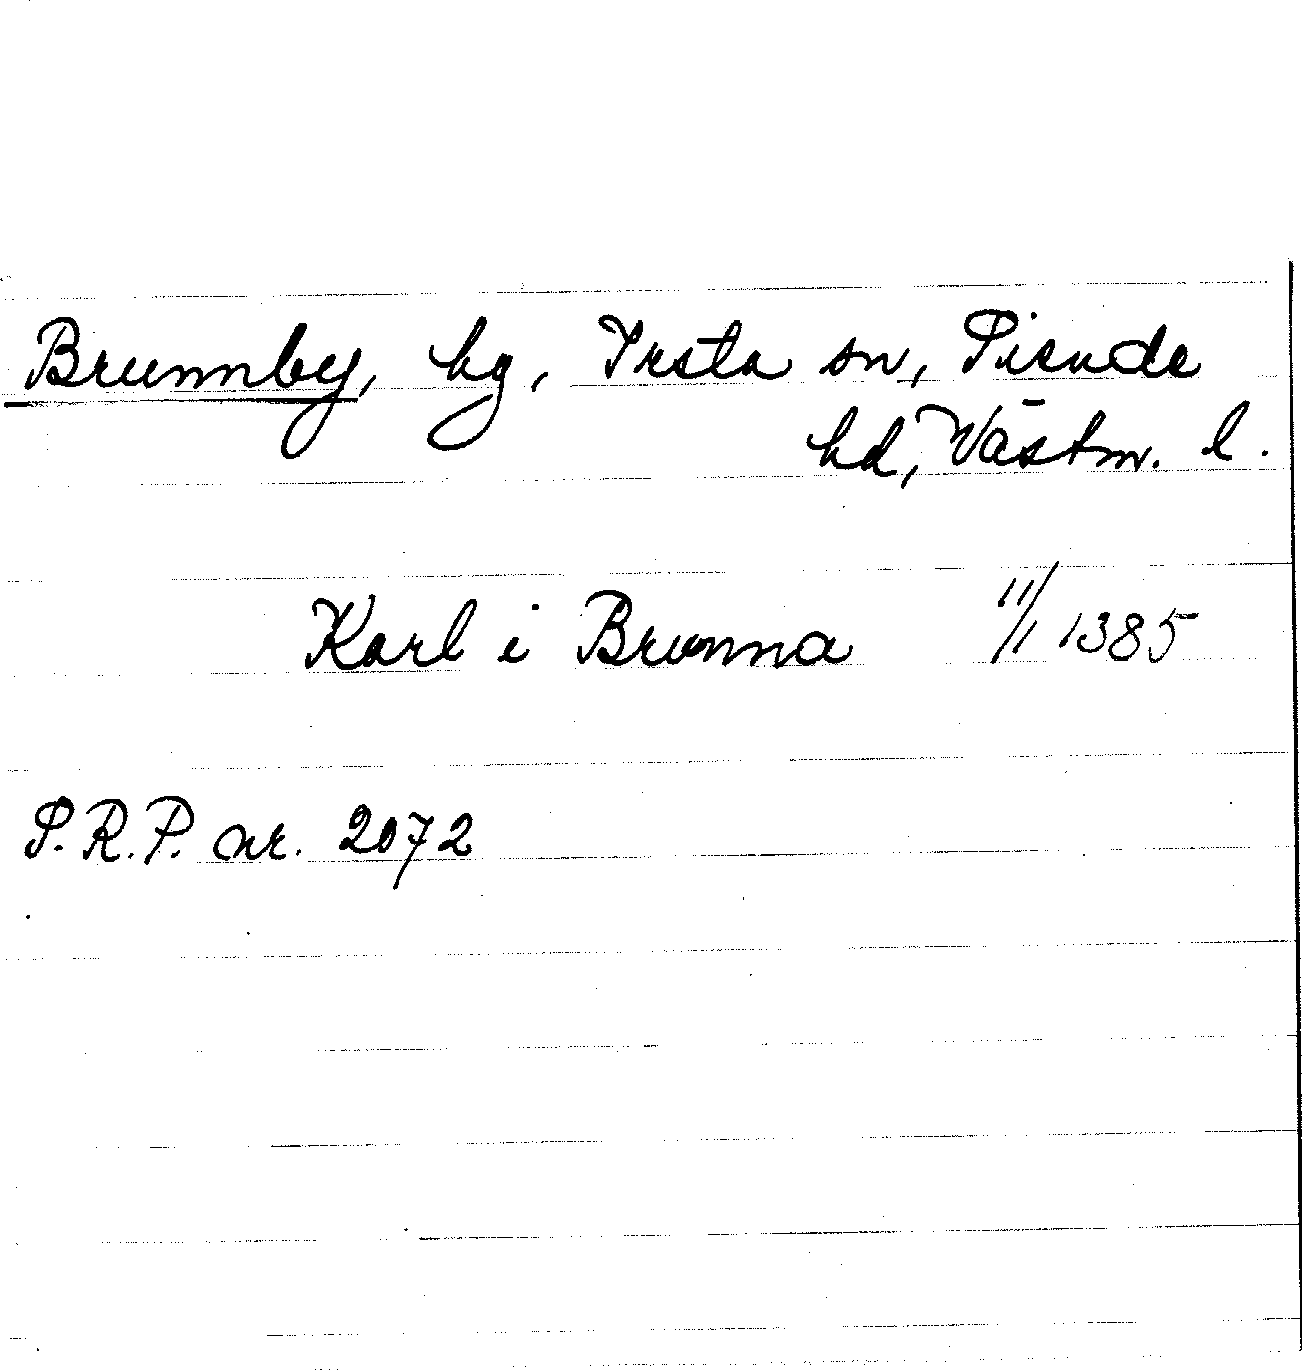 Brunnby, hg, Irsta sn, Siende
hd, Västm. l.
Karl i Brunna 11/1 1385
S.R.P. nr. 2072